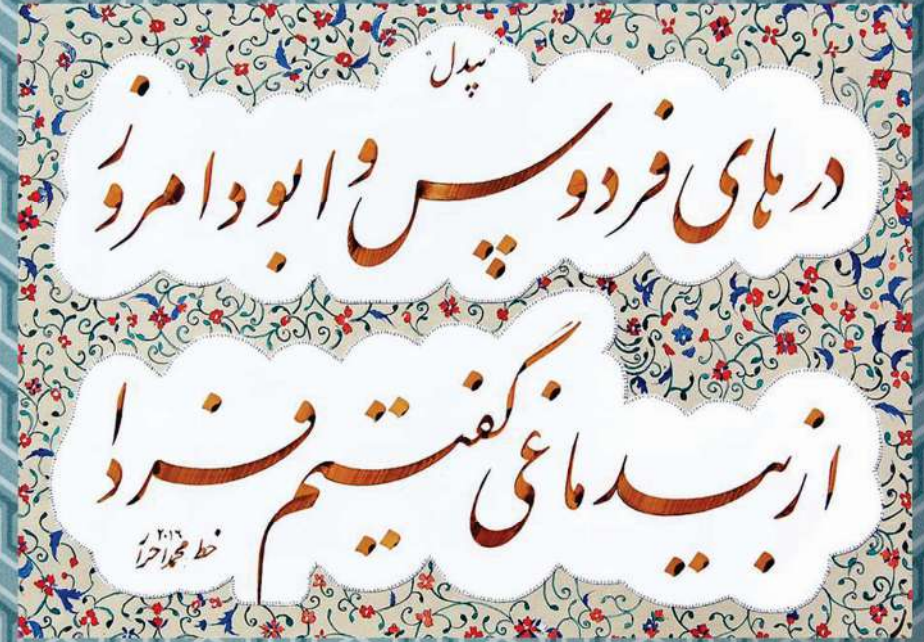 "بیدل"
درهای فردوس وا بود امروز
از بیدماغی گفتیم فردا
۲۰۱۶
خط محمد احرار